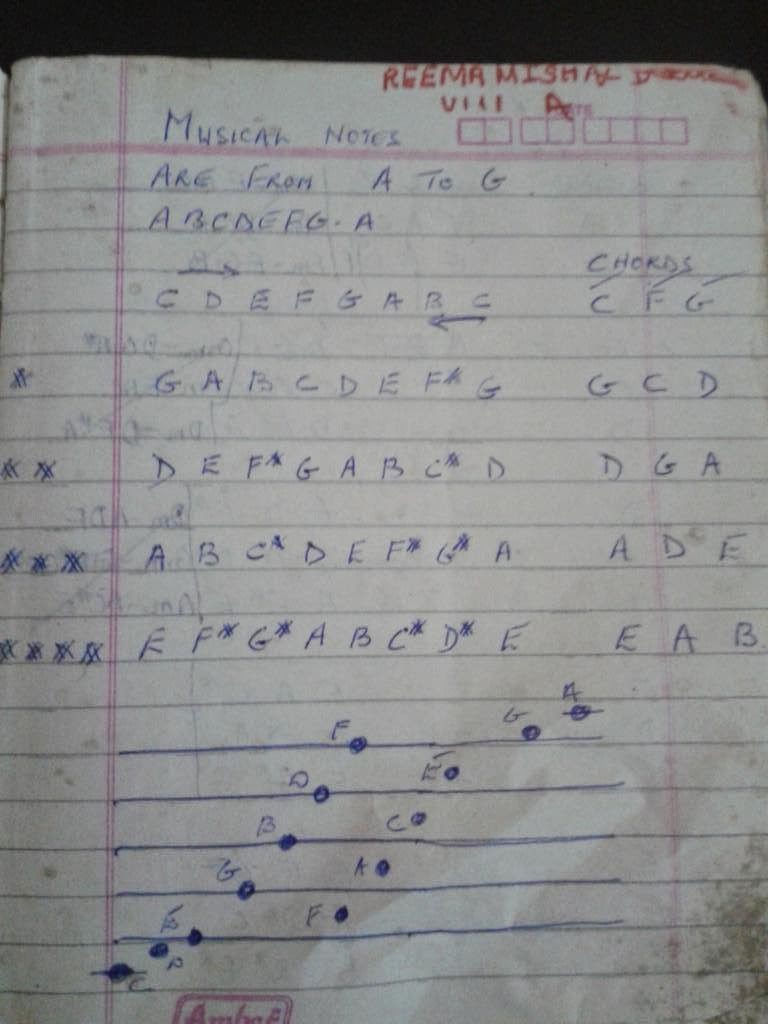 REEMA MISHAL
VIII A
MUSICAL NOTES
ARE FROM A TO G.
ABCDEFG. A
CHORDS
C D E F G A B C C F G
* G A B C D E F* G G C D
** D E F* G A B C* D D G A
*** A B C* D E F* G* A A D E
**** E F* G* A B C* D* E E A B
A
G
F
E
D
C
B
A
G
F
E
D
C